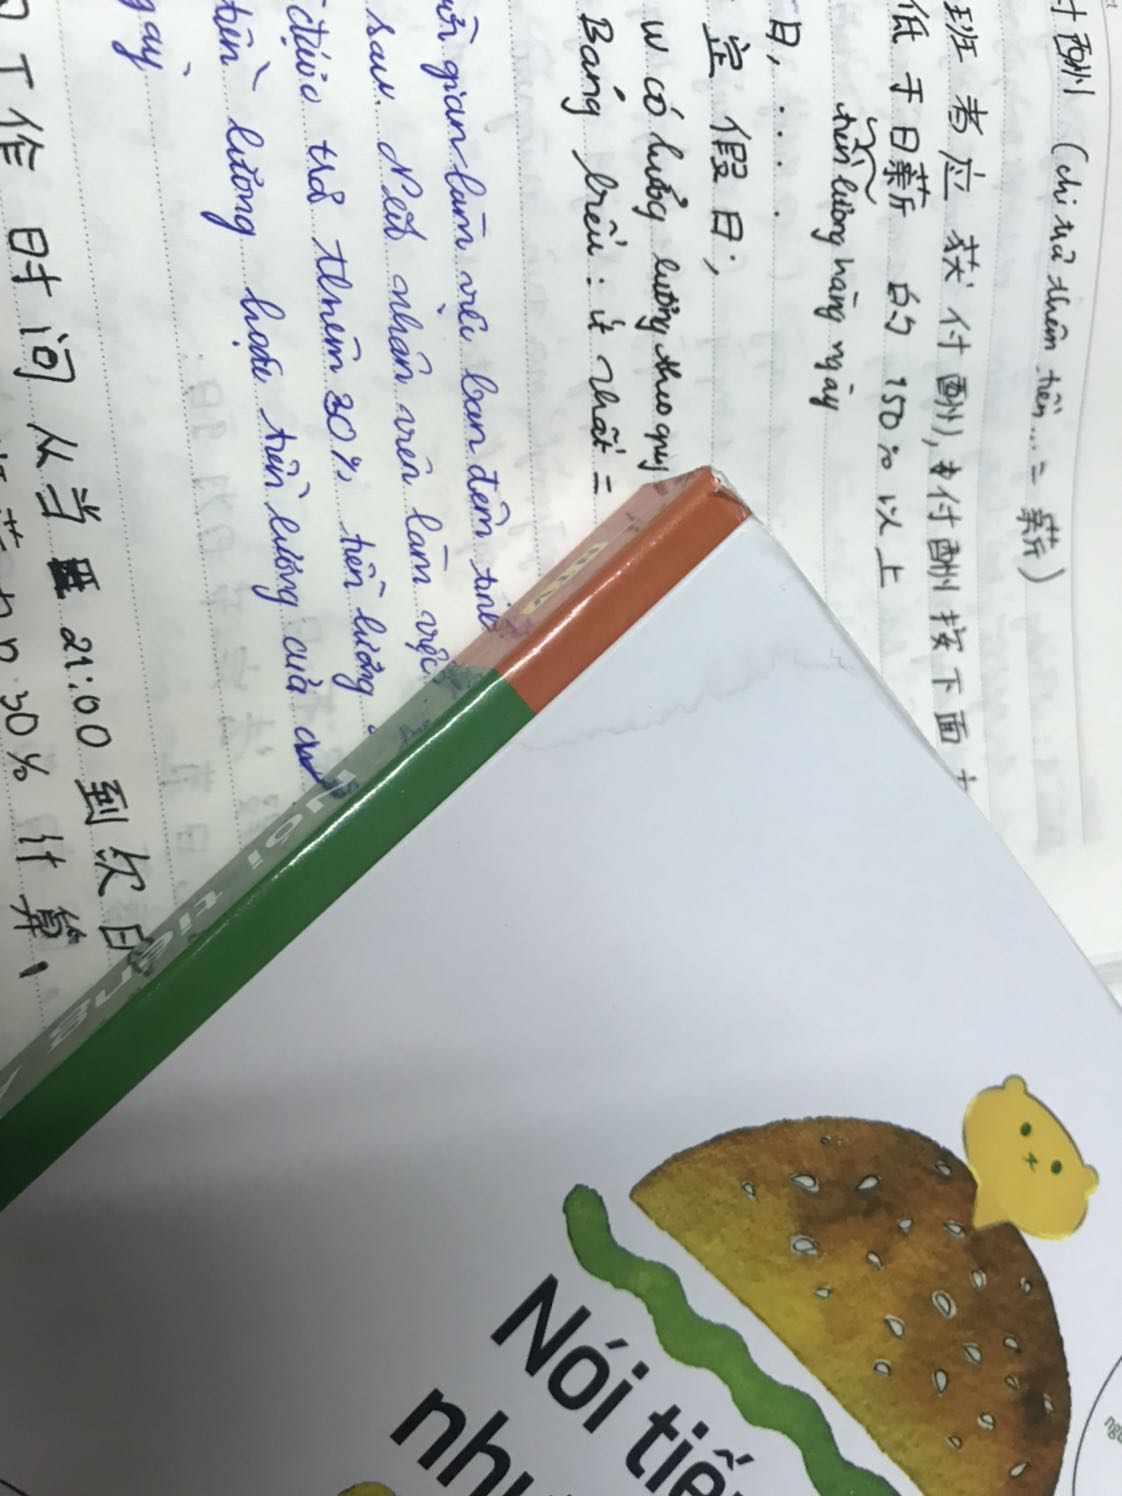 付酬 (chi trả thêm tiền... = 薪)
班者应获付酬, 付酬按下面
低于日薪的 150% 以上
tiền lương hàng ngày
日, . . .
定假日;
có hưởng lương theo quy
Bằng tiêu: ít nhất =
gian làm việc ban đêm tính
sau. Nếu nhân viên làm việc
được trả thêm 30% tiền lương
tiền lương hoặc tiền lương của
ngày
工作时间从当 21:00 到次日
30% 计算,
Nói tiếng
Nói tiế
như